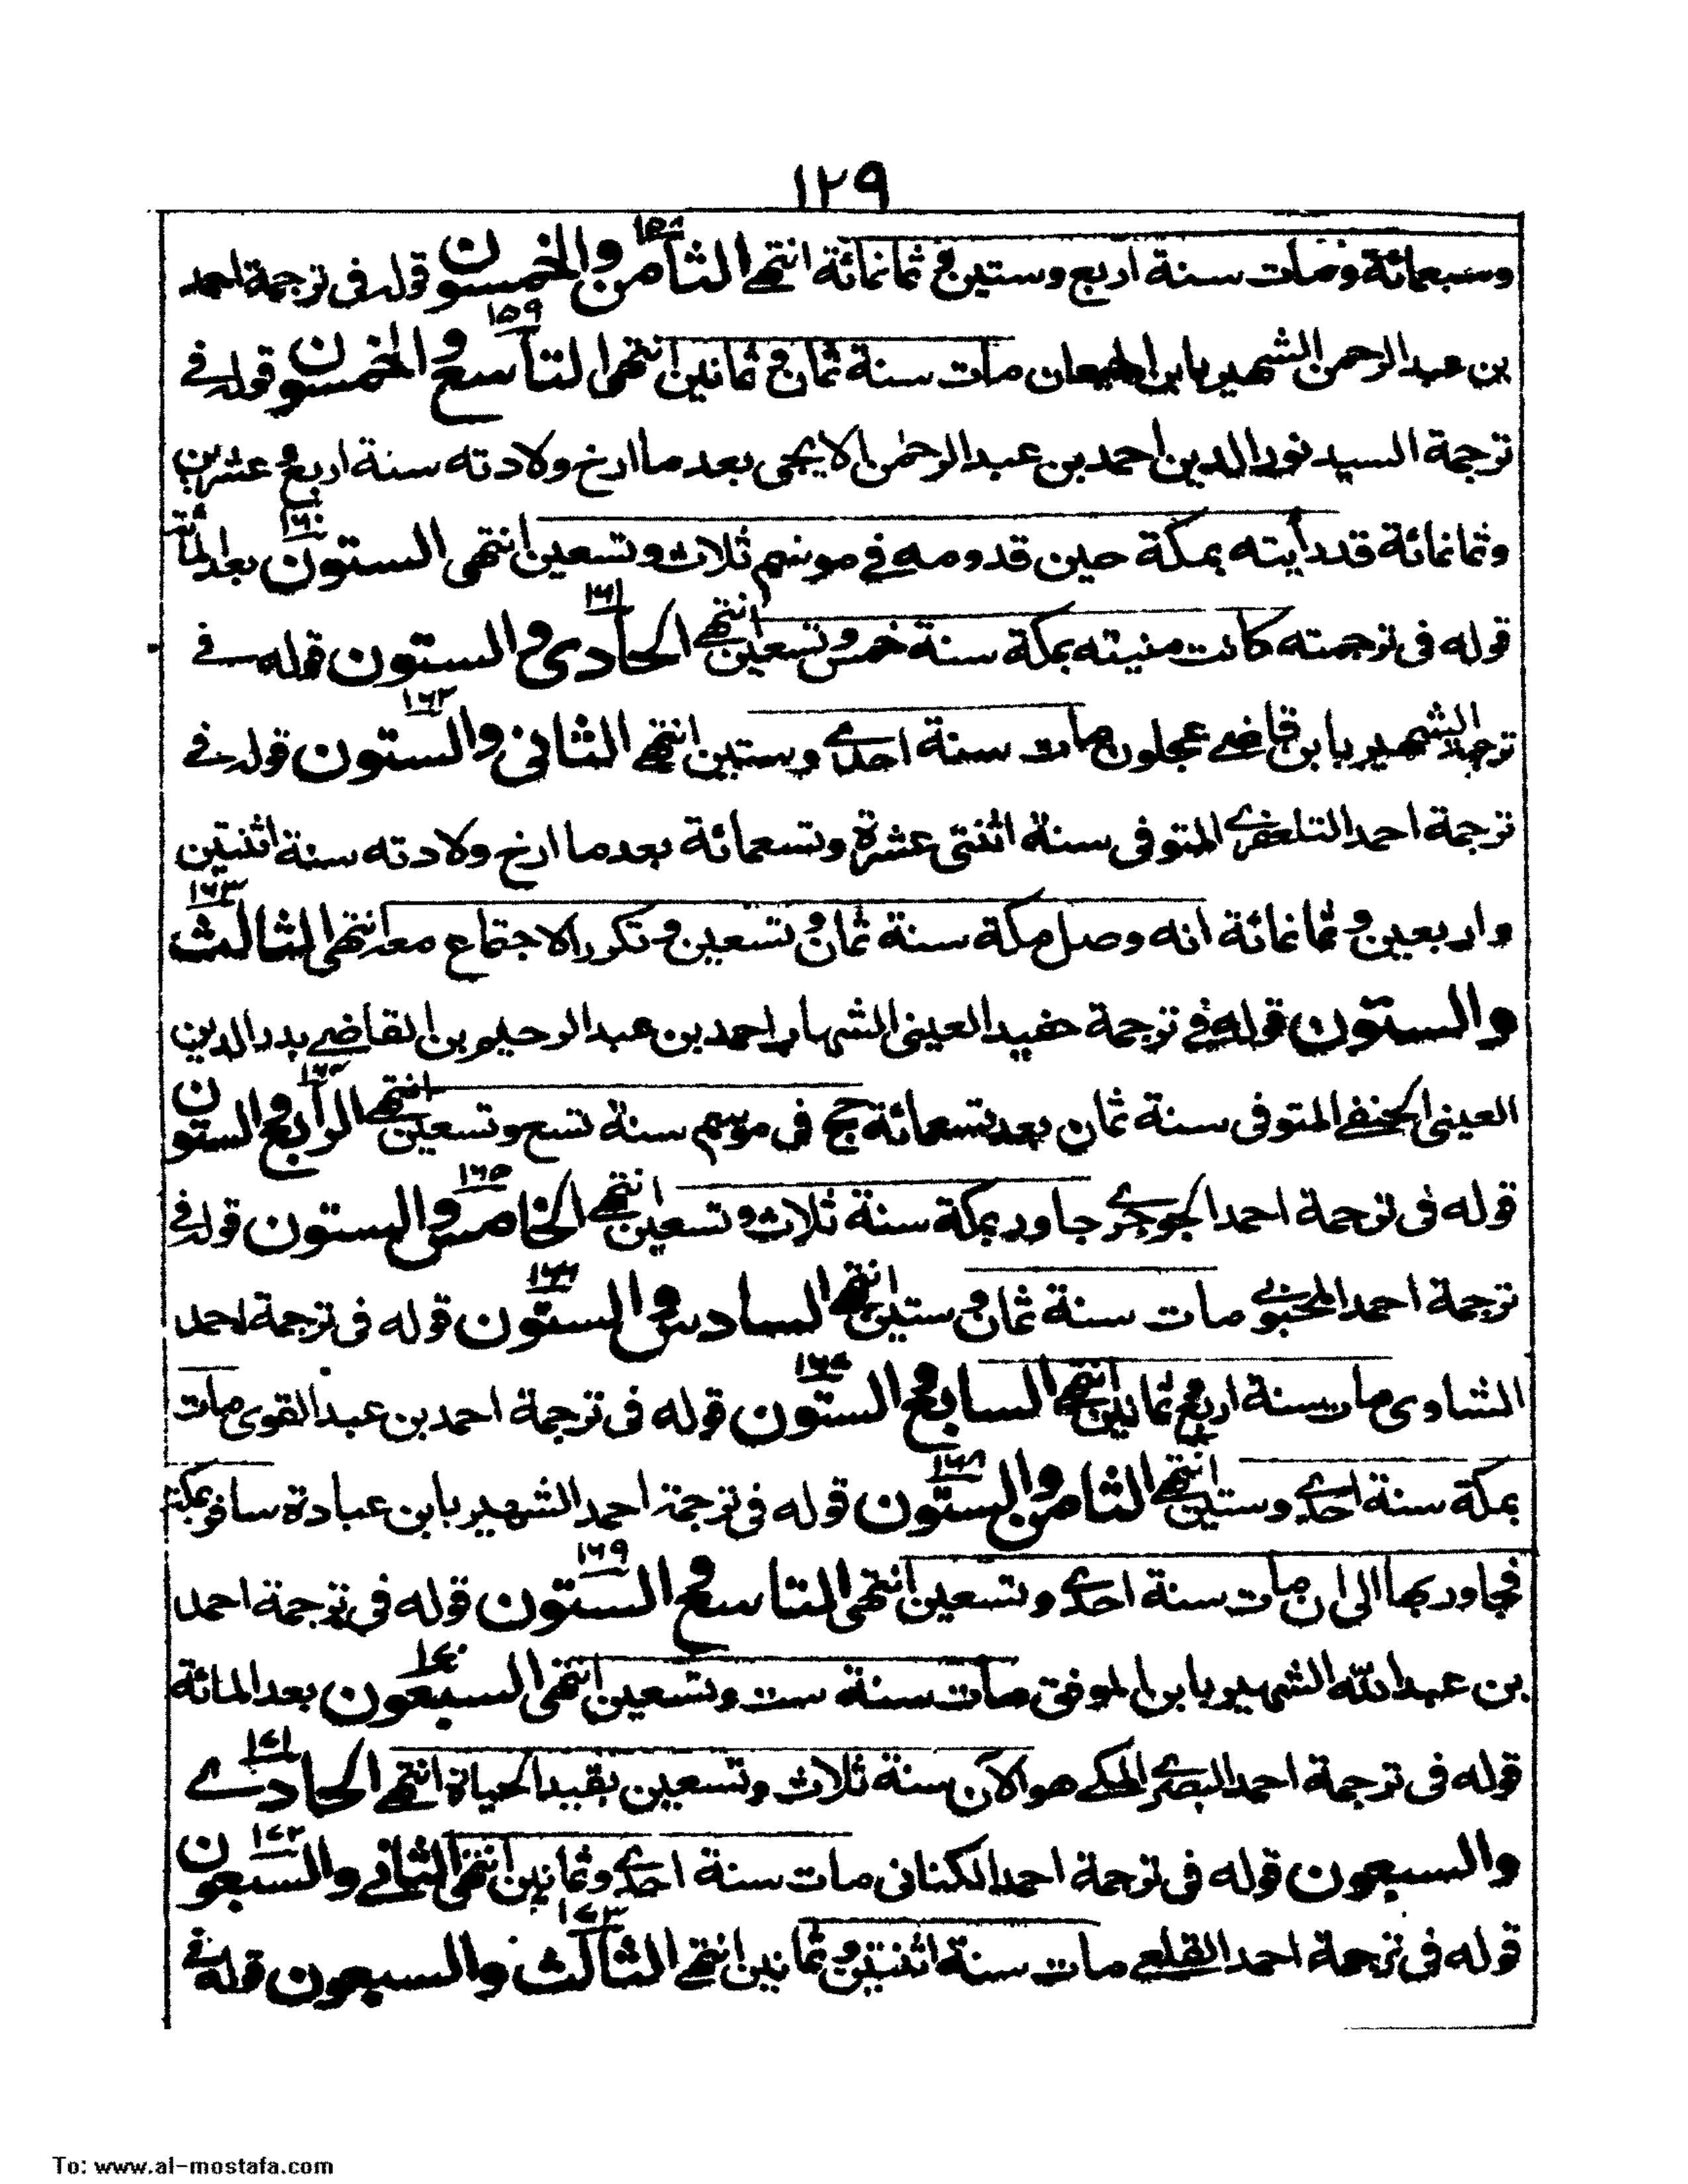 ١٢٩
وسبعمائة ومات سنة اربع وستين و ثمانمائة انتهى الثامن والخمسون ١٥٨ قوله فى ترجمة احمد
بن عبد الرحمن الشهير بابن الجيعان مات سنة ثمان و ثمانين انتهى التاسع و الخمسون ١٥٩ قوله فى
ترجمة السيد نور الدين احمد بن عبد الرحمن الايجى بعد ما ارخ ولادته سنة اربع و عشرين
وثمانمائة قد رأيته بمكة حين قدومه في موسم ثلاث وتسعين انتهى الستون ١٦٠ بعد المائة
قوله فى ترجمته كانت منيته بمكة سنة خمس و تسعين انتهى الحادى و الستون ١٦١ قوله فے
ترجمة الشهير بابن قاضے عجلون مات سنة احدے وستين انتهے الثانى والستون ١٦٢ قوله فے
ترجمة احمد التلعفرے المتوفى سنة اثنتى عشرة وتسعمائة بعد ما ارخ ولادته سنة اثنتين
واربعين و ثمانمائة انه وصل مكة سنة ثمان و تسعين و تكرر الاجتماع معه انتهى الثالث ١٦٣
والستون قوله فے ترجمة حفيد العينى الشهاب احمد بن عبد الرحيم بن القاضے بدر الدين
العينى الحنفے المتوفى سنة ثمان بعد تسعمائة حج فى موسم سنة تسع وتسعين انتهے الرابع و الستون ١٦٤
قوله فى ترجمة احمد الجوجرے جاور بمكة سنة ثلاث و تسعين انتهے الخامس و الستون ١٦٥ قوله فے
ترجمة احمد مات سنة ثمان و ستين انتهے السادس و الستون ١٦٦ قوله فى ترجمة احمد
الشاوى مات سنة اربع و ثمانين انتهے السابع و الستون ١٦٧ قوله فى ترجمة احمد بن عبد القوى مات
بمكة سنة احدے وستين انتهے الثامن و الستون ١٦٨ قوله فى ترجمة احمد الشهير بابن عبادة سافر بمكة
فجاور بها الى ان مات سنة احدے وتسعين انتهى التاسع و الستون ١٦٩ قوله فى ترجمة احمد
بن عبد الله الشهير بابن الموفق مات سنة ست وتسعين انتهى السبعون ١٧٠ بعد المائة
قوله فى ترجمة احمد البصرے المكے هو الآن سنة ثلاث وتسعين بقيد الحياة انتهے الحادے ١٧١
والسبعون قوله فى ترجمة احمد الكنانى مات سنة احدے وثمانين انتهى الثانے والسبعون ١٧٢
قوله فى ترجمة احمد القلعے مات سنة اثنتين و ثمانين انتهے الثالث والسبعون ١٧٣ قوله فے
To: www.al-mostafa.com